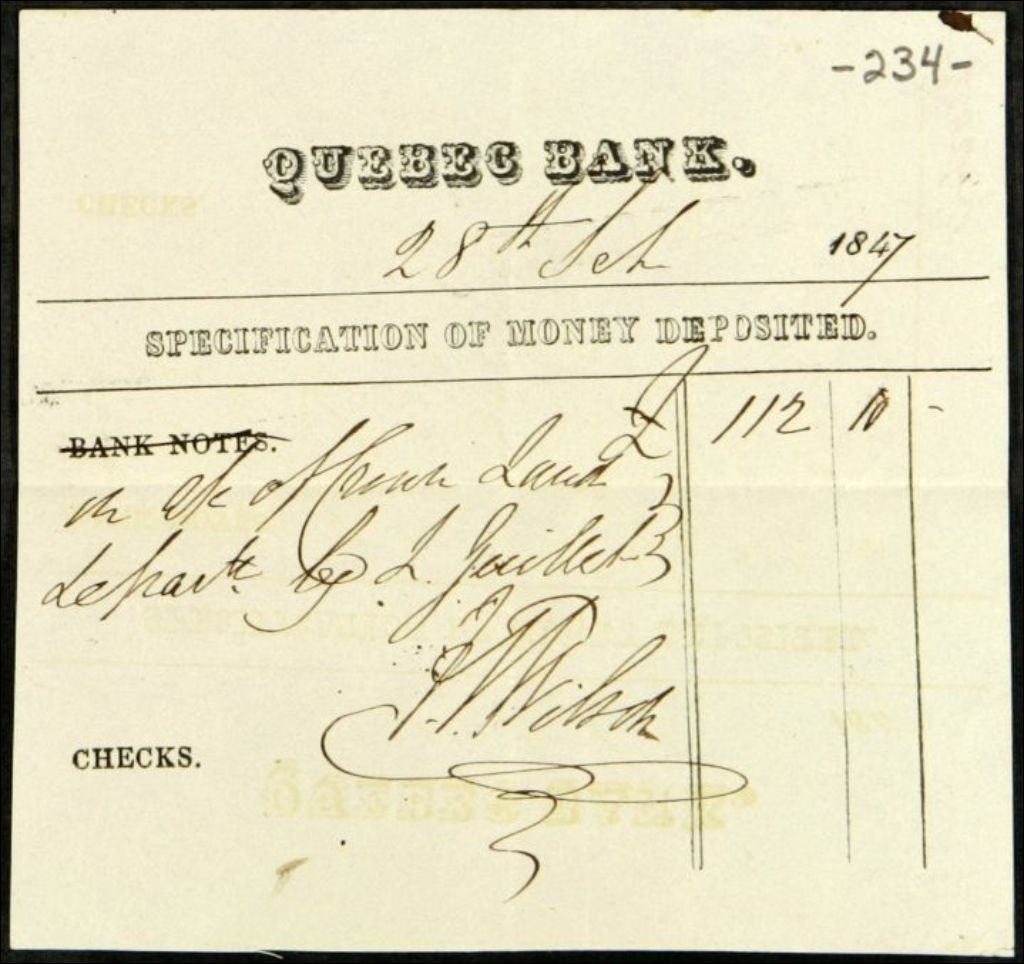 -234-
QUEBEC BANK.
28th Sep 1847
SPECIFICATION OF MONEY DEPOSITED.
BANK NOTES. £ 112 10 -
on a/c of Crown Land
Depart. by L. Guillet
J. Wilson
CHECKS.